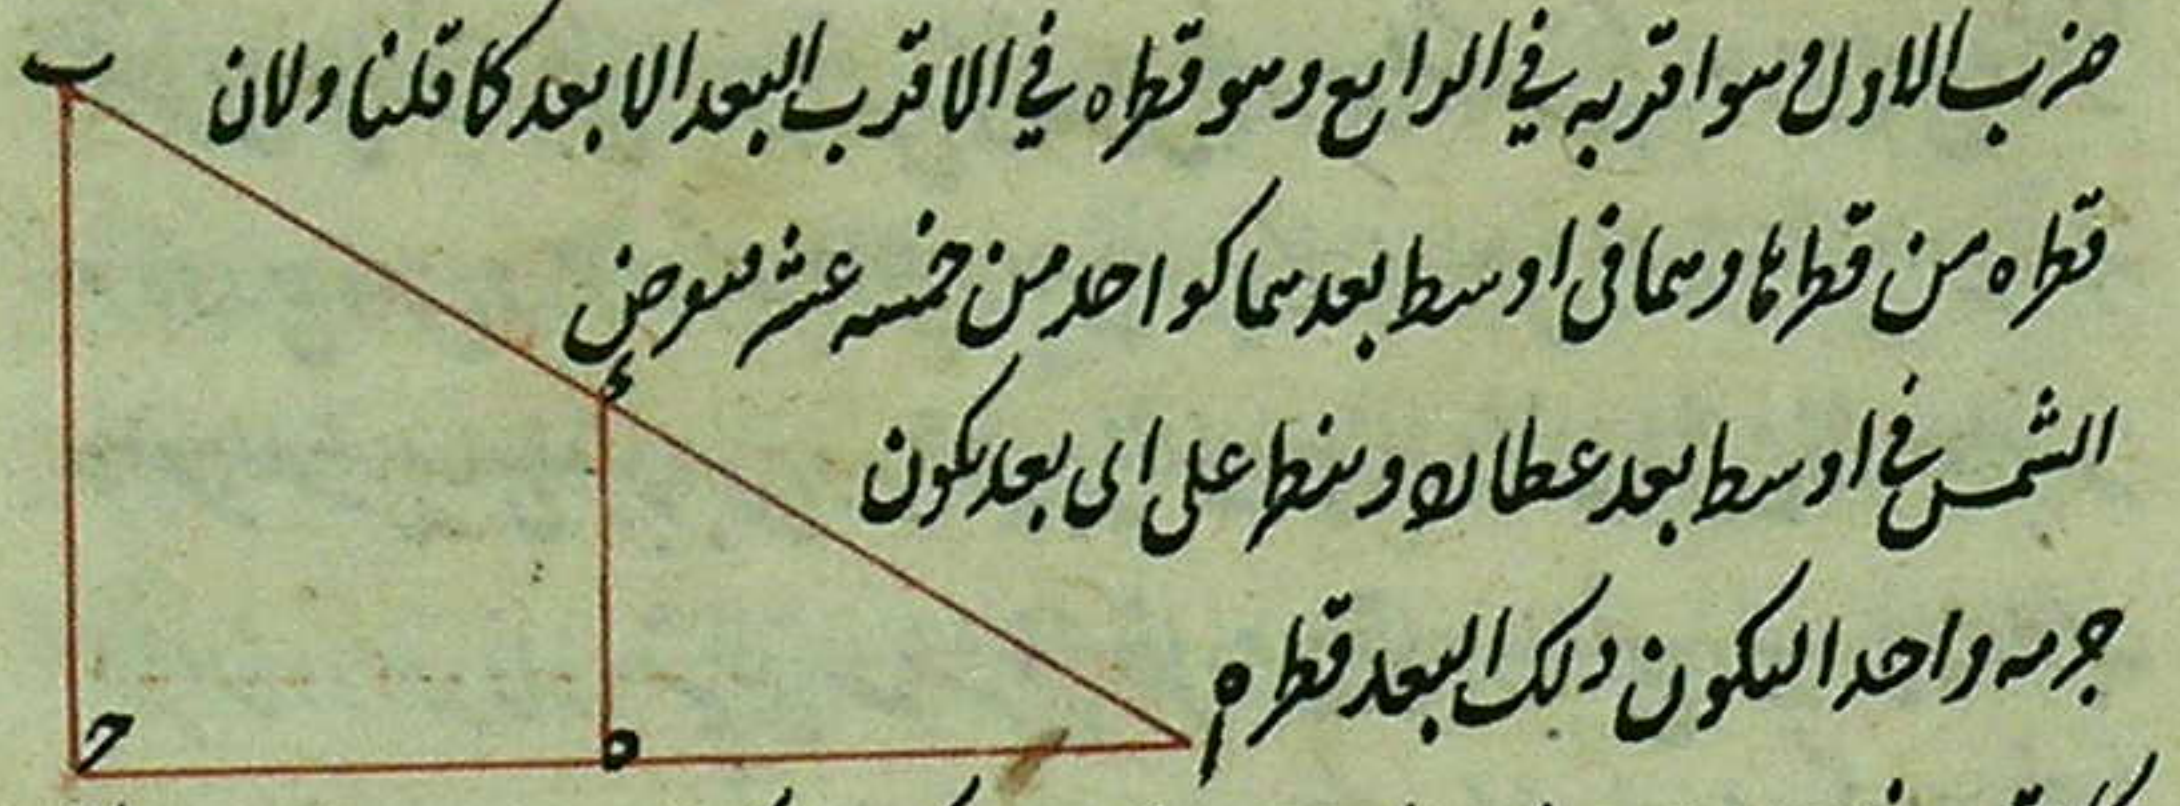 ضرب الاول وهو اقربه في الرابع وهو قطره في الاقرب البعد الابعد كما قلنا ولان
قطره من قطرها وهما في اوسط بعدهما كواحد من خمسه عشر
الشمس في اوسط بعد عطارد وىنظر على اى بعد ىكون
جرمه واحدا لىكون دلك البعد قطره
ب
د
ا
ه
ح